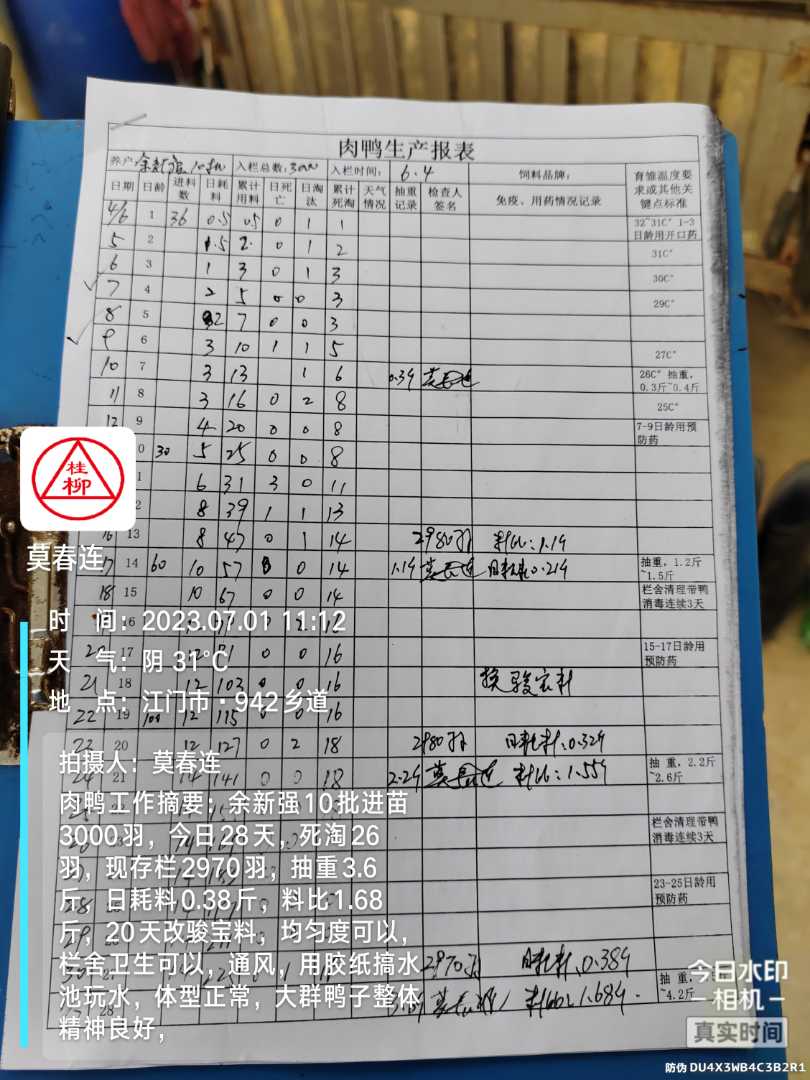 肉鸭生产报表
养户:余新强 10批 入栏总数:3000 入栏时间: 6.4 饲料品牌: 育雏温度要求或其他关键点标准
日期 日龄 进料数 日耗料 累计用料 日死亡 日淘汰 累计死淘 天气情况 抽重记录 检查人签名 免疫、用药情况记录
4/6 1 36 0.5 0.5 0 1 1 32~31C° 1-3日龄用开口药
5 2 1.5 2 0 1 2 31C°
6 3 1 3 0 1 3 30C°
7 4 2 5 0 0 3 29C°
8 5 2 7 0 0 3
9 6 3 10 1 1 5 27C°
10 7 3 13 1 6 0.39 莫春连 26C° 抽重,0.3斤~0.4斤
11 8 3 16 0 2 8 25C°
12 9 4 20 0 0 8 7-9日龄用预防药
0 30 5 25 0 0 8
1 6 31 3 0 11
2 8 39 1 1 13
16 13 8 47 0 1 14 2980羽 料比:1.19
17 14 60 10 57 0 14 1.19 莫春连 日耗料0.219 抽重,1.2斤~1.5斤
18 15 10 67 0 0 14 栏舍清理带鸭消毒连续3天
16
17 0 0 16 15-17日龄用预防药
21 18 12 103 0 0 16 换骏宝料
22 19 100 12 115 0 0 16
23 20 12 127 0 2 18 2980羽 日耗料0.329
24 21 14 141 0 0 18 2.29 莫春连 料比:1.559 抽重,2.2斤~2.6斤
栏舍清理带鸭消毒连续3天
23-25日龄用预防药
2970羽 日耗料0.389
28 料比:1.689 抽重,
~4.2斤
桂柳
莫春连
时 间:2023.07.01 11:12
天 气:阴 31℃
地 点:江门市·942乡道
拍摄人:莫春连
肉鸭工作摘要:余新强10批进苗
3000羽,今日28天,死淘26
羽,现存栏2970羽,抽重3.6
斤,日耗料0.38斤,料比1.68
斤,20天改骏宝料,均匀度可以,
栏舍卫生可以,通风,用胶纸搞水
池玩水,体型正常,大群鸭子整体
精神良好,
今日水印
相机
真实时间
防伪 DU4X3WB4C3B2R1